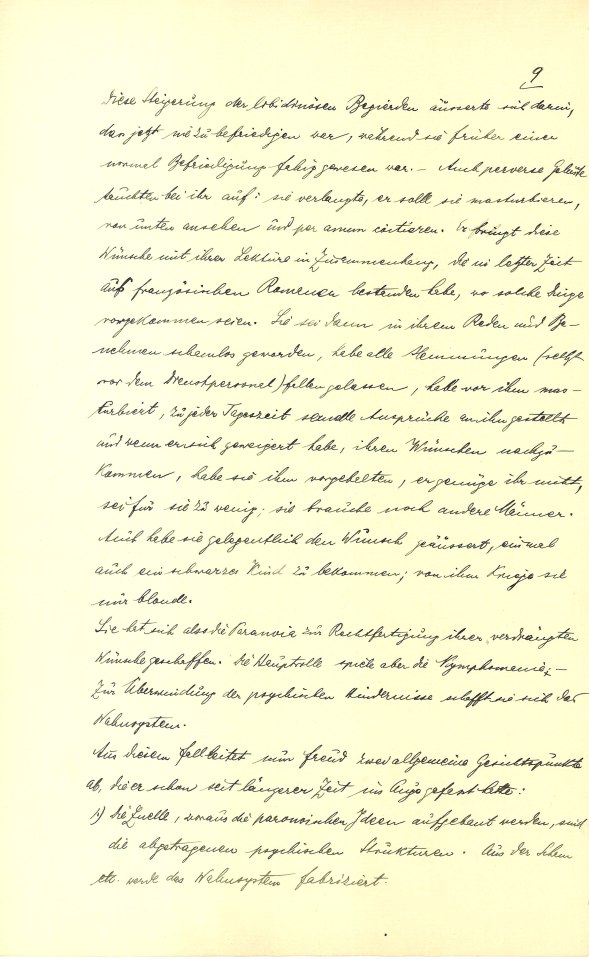 9
Diese Steigerung der libidinösen Begierden äusserte sich darin,
dass jetzt nie zu befriedigen war, während sie früher einer
normal Befriedigung fähig gewesen war. – Auch perverse Gelüste
tauchten bei ihr auf: sie verlangte, er solle sie masturbieren,
von unten ansehen und per anum coitieren. Er bringt diese
Wünsche mit ihrer Lektüre in Zusammenhang, die in letzter Zeit
aus französischen Romanen bestanden habe, wo solche Dinge
vorgekommen seien. Sie sei dann in ihrem Reden und Be-
nehmen schamlos geworden, habe alle Hemmungen (selbst
vor dem Dienstpersonal) fallen gelassen, habe vor ihm mas-
turbiert, zu jeder Tageszeit sexuelle Ansprüche an ihn gestellt
und wenn er sich geweigert habe, ihren Wünschen nachzu-
kommen, habe sie ihm vorgehalten, er genüge ihr nicht,
sei für sie zu wenig; sie brauche noch andere Männer.
Auch habe sie gelegentlich den Wunsch geäussert, einmal
auch ein schwarzes Kind zu bekommen; von ihm kriege sie
nur blonde.
Sie hat sich also die Paranoia zur Rechtfertigung ihrer verdrängten
Wünsche geschaffen. Die Hauptrolle spiele aber die Nymphomanie; –
Zur Überwindung der psychischen Hindernisse schafft sie sich das
Wahnsystem.
Aus diesem Fall leitet nun Freud zwei allgemeine Gesichtspunkte
ab, die er schon seit längerer Zeit ins Auge gefasst hatte:
1) Die Quelle, woraus die paranoischen Ideen aufgebaut werden, sind
die abgetragenen psychischen Strukturen. Aus der Scham
etc. werde das Wahnsystem fabriziert.